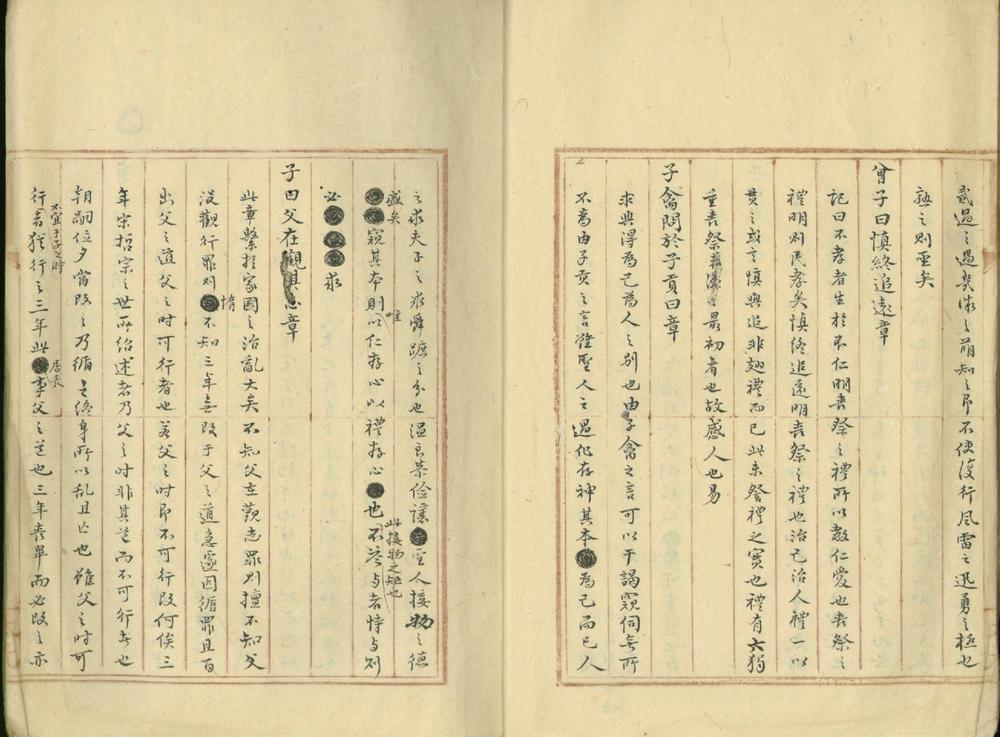 貳過之過幾微之萌知之即不使復行風雷之迅勇之極也
熟之則聖矣
曾子曰慎終追遠章
記曰不孝者生於不仁明喪祭之禮所以教仁愛也喪祭之
禮明則民孝矣慎終追遠明喪祭之禮也治己治人禮一以
貫之或言慎與追非翅禮而已此未詧禮之實也禮有六獨
重喪祭最初者也故感人也易
子禽問於子貢曰章
求與得為己為人之別也由子禽之言可以干謁窺伺無所
不為由子貢之言雖聖人之過化存神其本為己而已人
之求夫子之求舜蹠之分也溫良恭儉讓聖人接物之德
盛矣
此接物之矩也
窺其本則以仁存心以禮存心也不必与者恃与列
唯
必求
子曰父在觀其志章
此章繫於家國之治亂大矣不知父在觀志罪則擅不知父
沒觀行罪則不知三年無改于父之道急遽因循罪且百
惰
出父之道父之時可行者也若父之時即不可行改何俟三
年宗哲宗之世所紹述者乃父之時非其道而不可行者也
朝嗣位夕當改之乃循之終身所以乱且亡也雖父之時可
行者猶行之三年此事父之道也三年喪畢而必改之亦
不宜于子之時
居喪